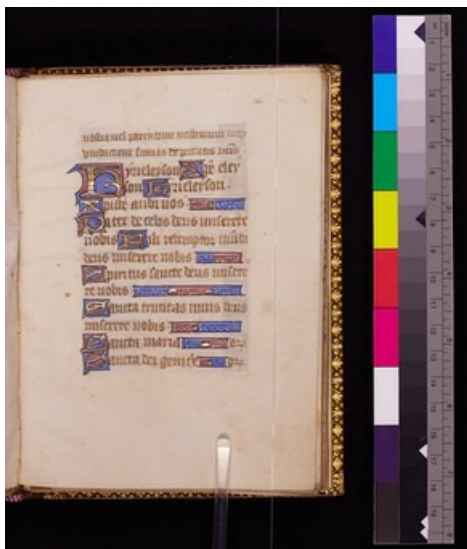 nostra vel parentum nostrorum neq
vindictam sumas de peccatis nr̄is
Kyrieleyson Xp̄e eley
son Kyrieleyson
Xp̄iste audi nos
Pater de celis deus miserere
nobis Fili redemptor mūdi
deus miserere nobis
Spiritus sancte deus misere
re nobis
Sancta trinitas unus deus
miserere nobis
Sancta maria or.
Sancta dei genitˣ or.